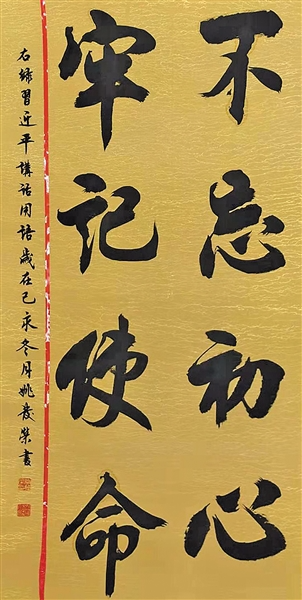 不忘初心
牢记使命
右录習近平講話用語歲在己亥冬月姚發榮書